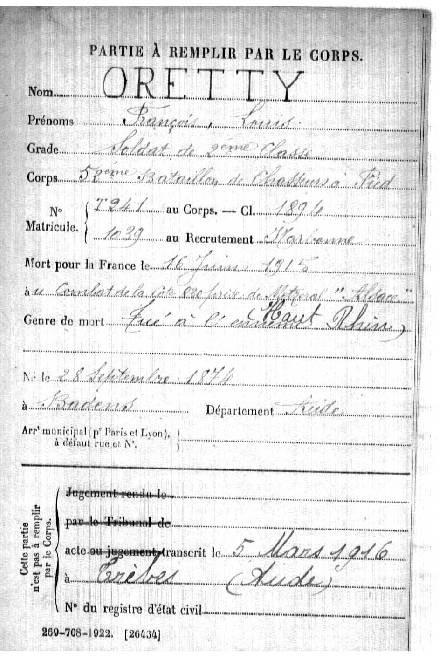 PARTIE À REMPLIR PAR LE CORPS.
Nom ORETTY
Prénoms François, Louis.
Grade Soldat de 2ème Classe
Corps 52ème Bataillon de Chasseurs à Pied
N° Matricule. { T241 au Corps. — Cl. 1894
1039 au Recrutement Narbonne
Mort pour la France le 16 Juin 1915
à u Combat de la côte 830 près de Metzeral "Alsace"
Genre de mort Tué à l'ennemi (Haut Rhin)
Né le 28 Septembre 1874
à Badens Département Aude
Arrt municipal (pr Paris et Lyon), à défaut rue et N°.
Cette partie n'est pas à remplir par le Corps.
Jugement rendu le
par le Tribunal de
acte ou jugement transcrit le 5 Mars 1916
à Trèbes (Aude)
N° du registre d'état civil
269-708-1922. [26434]